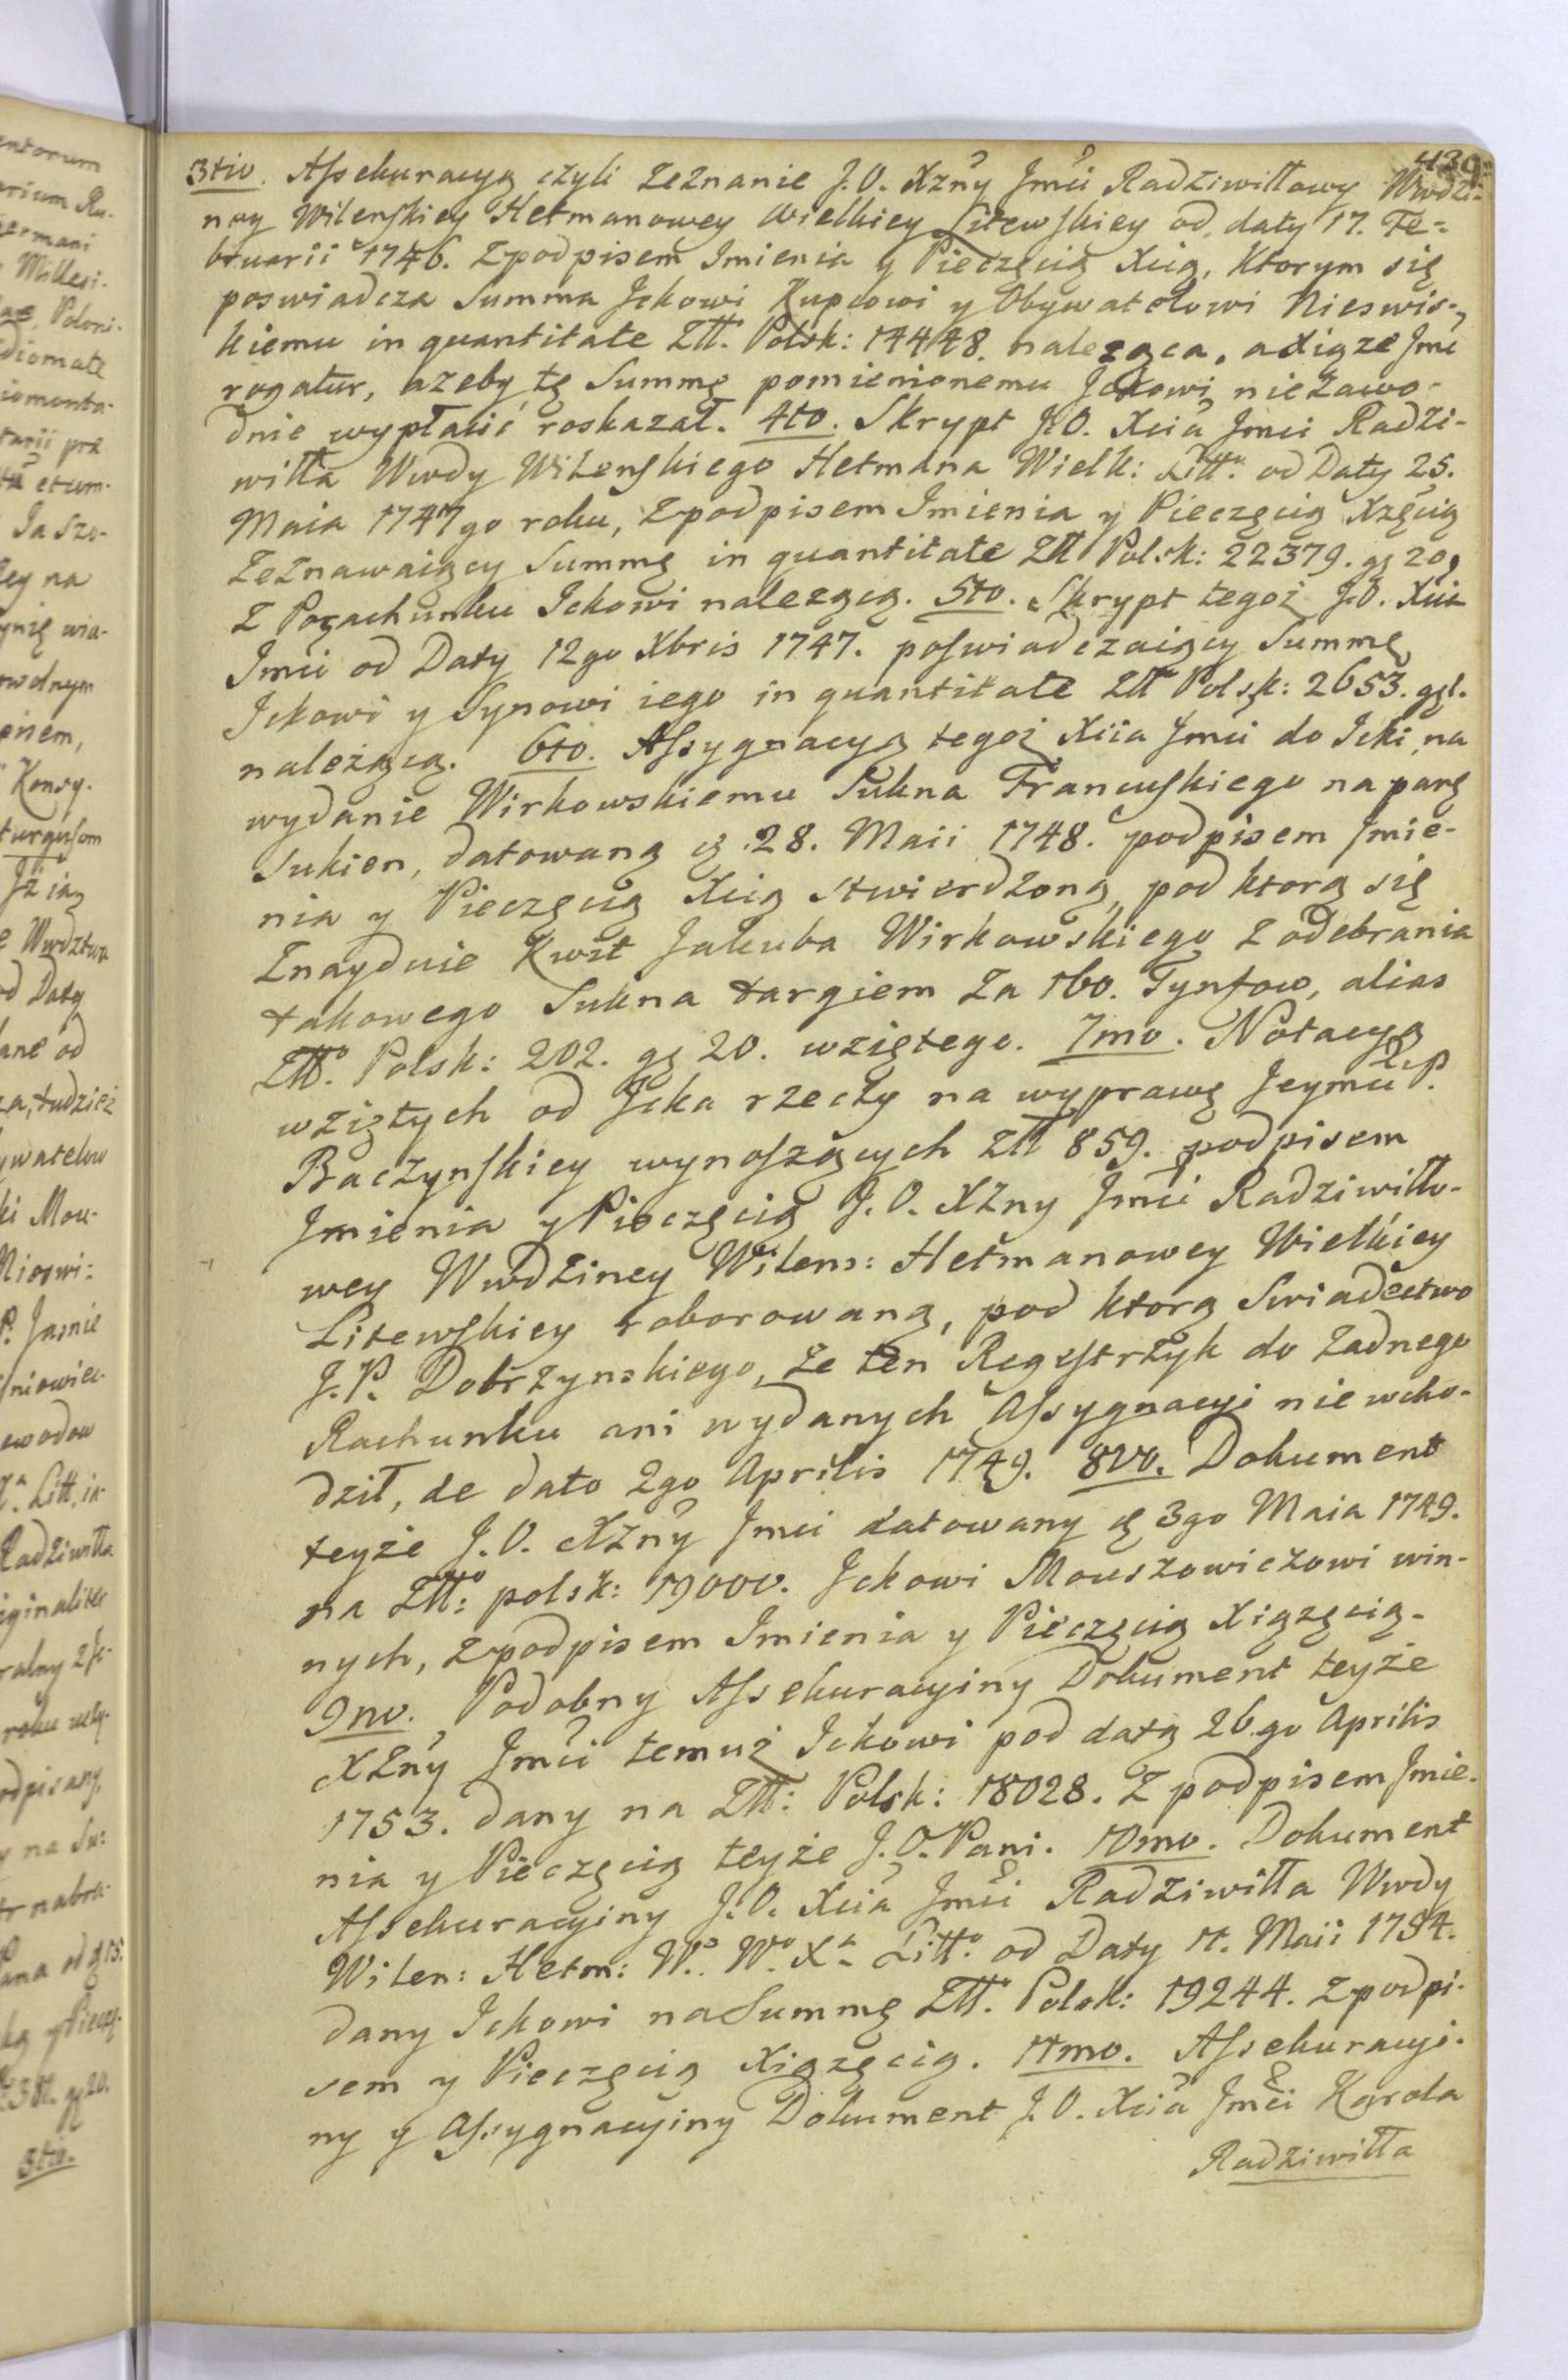 439.
3tio. Assekuracyą czyli Zeznanie J.O. Xzny Jmci Radziwiłłowy Wwdzi-
ney Wilenskiey Hetmanowey Wielkiey Litewskiey od daty 17. Fe-
bruarii 1746. Zpodpisem Imienia y Pieczęcią Xcią, Ktorym się
poswiadcza Summa Jckowi Kupcowi y Obywatelowi Nieswis-
kiemu in quantitate Złł. Polsk: 14448. należąca, a Xiąże Jmć
rogatur, azeby tę Summę pomienionemu Jckowi niezawo-
dnie wypłacić roskazał. 4to. Skrypt J.O. Xcia Jmci Radzi-
wiłła Wwdy Wilenskiego Hetmana Wielk: Litt. od Daty 25.
Maia 1747go roku, Zpodpisem Imienia y Pieczęcią Xzęcią
Zeznawaiący Summę in quantitate Złł Polsk: 22379. gr 20,
Z Porachunku Jckowi nalezącą. 5to. Skrypt tegoż J.O. Xcia
Jmci od Daty 12go Xbris 1747. poswiadczaiący Summę
Jckowi y Synowi iego in quantitate Złł Polsk: 2653. gr 1.
należącą. 6to. Assygnacyą tegoż Xcia Jmci do Icki, na
wydanie Wirkowskiemu Sukna Francuskiego na parę
Sukien, datowaną d. 28. Maii 1748. podpisem Jmie-
nia y Pieczęcią Xcią stwierdzoną, pod ktorą się
Znayduie Kwit Jakuba Wirkowskiego z odebrania
takowego Sukna targiem Za 160. Tynfow, alias
Złł. Polsk: 202. gr 20. wziętego. 7mo. Notacyą
wziętych od Jcka rzeczy na wyprawę Jeymci P.
Baczynskiey wynoszących Złł 859. podpisem
Jmienia y Pieczęcią J.O. XZny Jmci Radziwiłło-
wey Wwdziney Wilens: Hetmanowey Wielkiey
Litewskiey roborowaną, pod ktorą Swiadectwo
J.P. Dobrzynskiego, Ze ten Regestrzyk do Zadnego
Rachunku ani wydanych Assygnacyi nie wcho-
dził, de dato 2go Aprilis 1749. 8vo. Dokument
teyże J.O. XZny Jmci datowany d. 3go Maia 1749.
na Złł: polsk: 19000. Jckowi Mouszowiczowi win-
nych, z podpisem Imienia y Pieczęcią Xiązęcią.
9no. Podobny Assekuracyiny Dokument teyże
XZny Jmci temuż Ickowi pod datą 26.go Aprilis
1753. dany na Złł: Polsk: 18028. Z podpisem Jmie-
nia y Pieczęcią teyże J.O. Pani. 10mo. Dokument
Assekuracyiny J.O. Xcia Jmci Radziwiłła Wwdy
Wilen: Hetm: W. W. X. Litt. od Daty 11. Maii 1754.
dany Ickowi na Summę Złł. Polsk: 19244. Z podpi-
sem y Pieczęcią Xiązęcią. 11mo. Assekuracyi-
ny y Assygnacyiny Dokument J.O. Xcia Jmci Karola
Radziwiłła